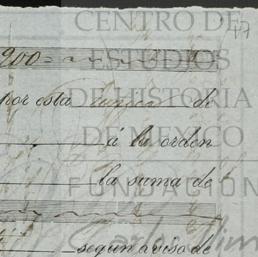 CENTRO DE
47
ESTUDIOS
900=
DE HISTORIA
por esta única de
DE MEXICO
á la orden
la suma de
FUNDACIÓN
Carlos Slim
segun aviso de